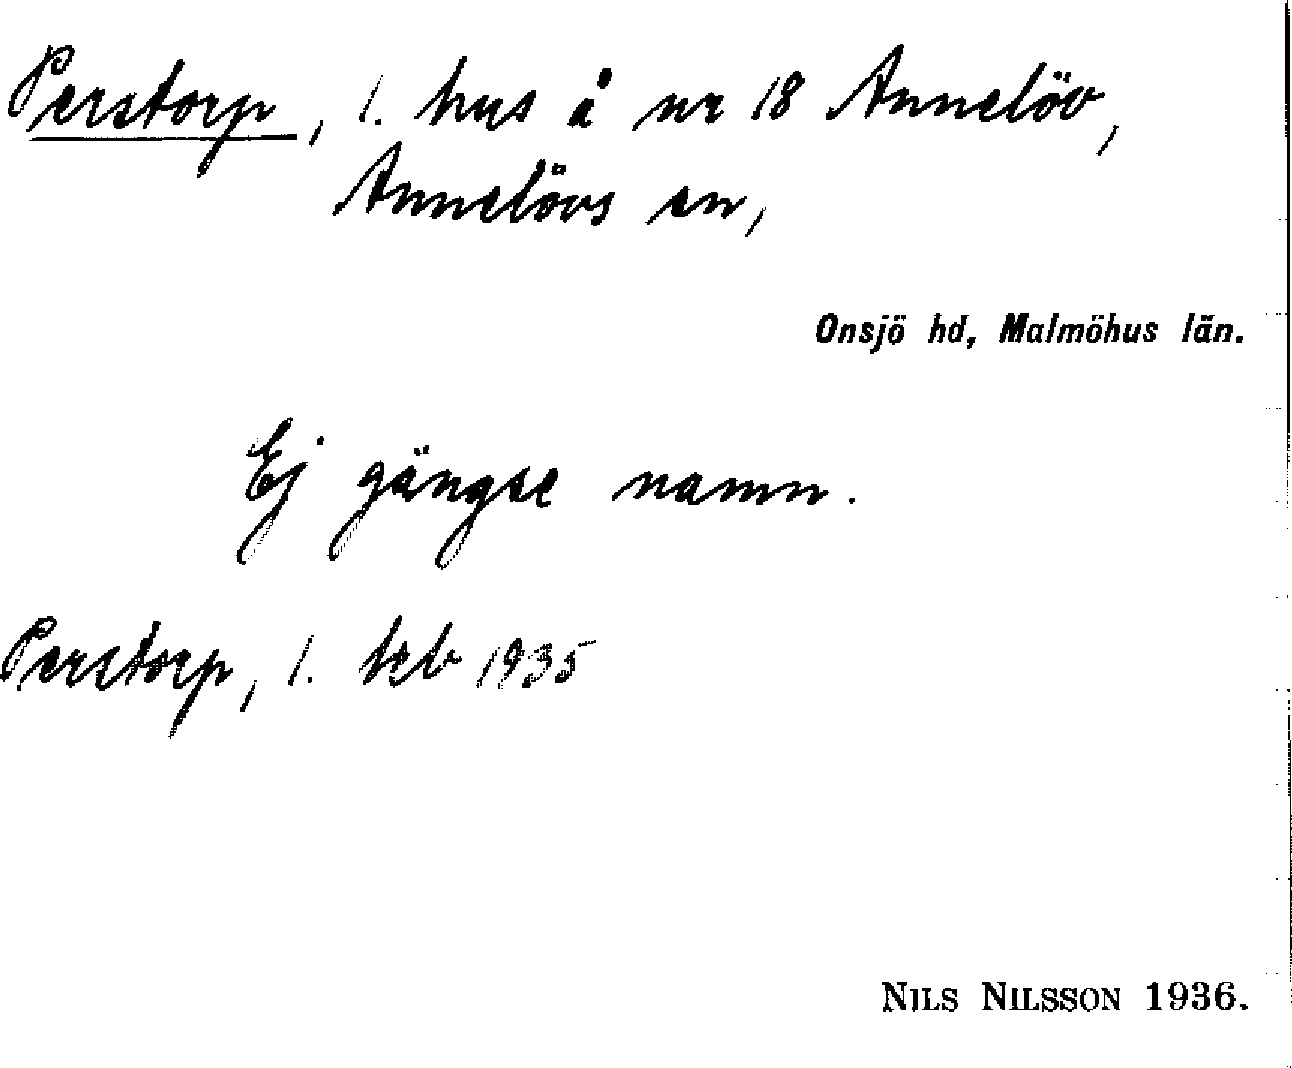 Perstorp, 1. hus å nr 18 Annelöv,
Annelövs sn,
Onsjö hd, Malmöhus län.
Ej gängse namn.
Perstorp, 1. tcb 1935
NILS NILSSON 1936.